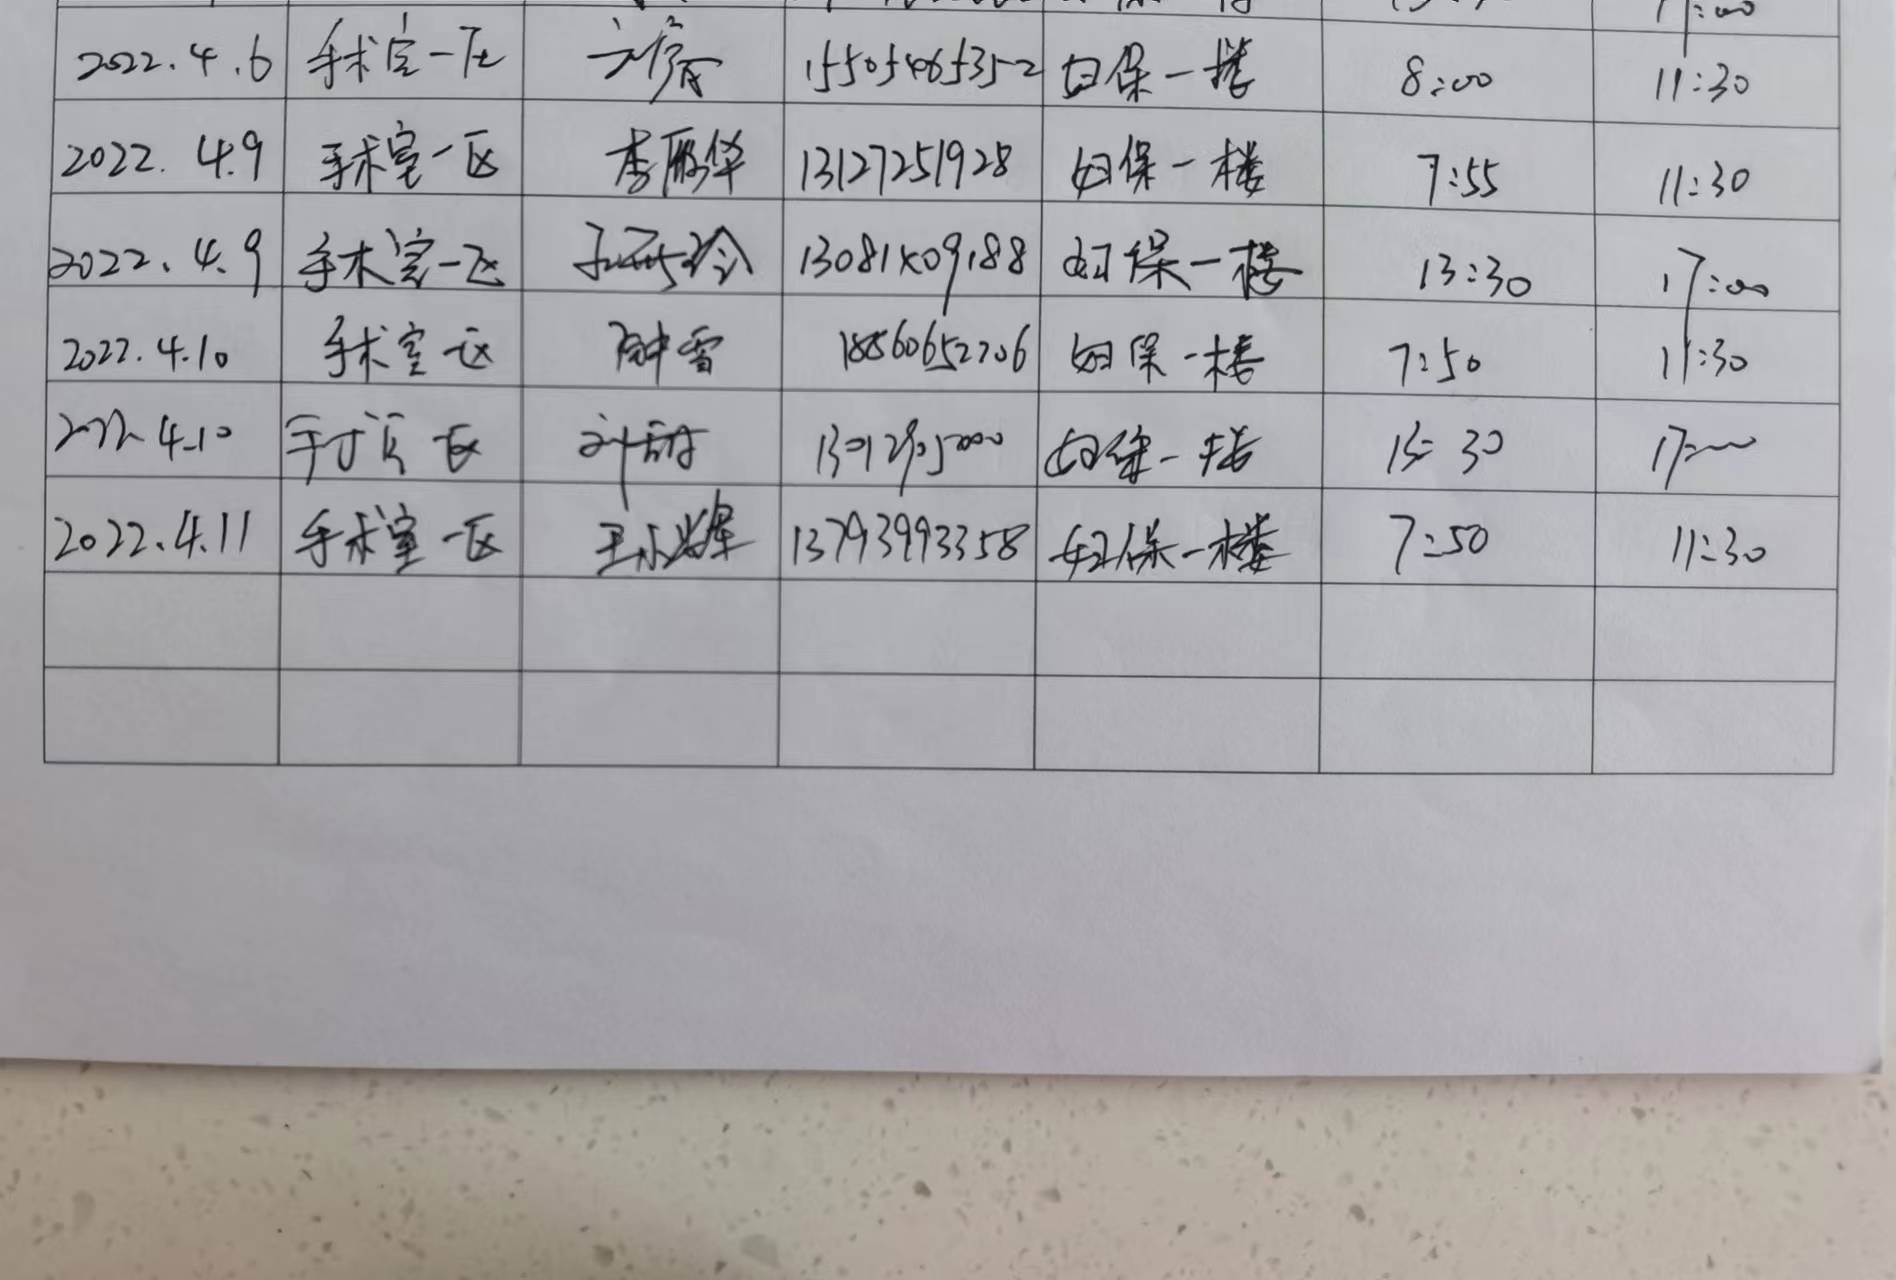 17:00
2022.4.6 手术室一区 15505465352 妇保一楼 8:00 11:30
2022.4.9 手术室一区 李丽华 13127251928 妇保一楼 7:55 11:30
2022.4.9 手术室一区 妇保一楼 13:30 17:00
2022.4.10 手术室一区 雪 18860652706 妇保一楼 7:50 11:30
2022.4.10 手术室一区 妇保一楼 13:30 17:00
2022.4.11 手术室一区 王 13793993358 妇保一楼 7:50 11:30